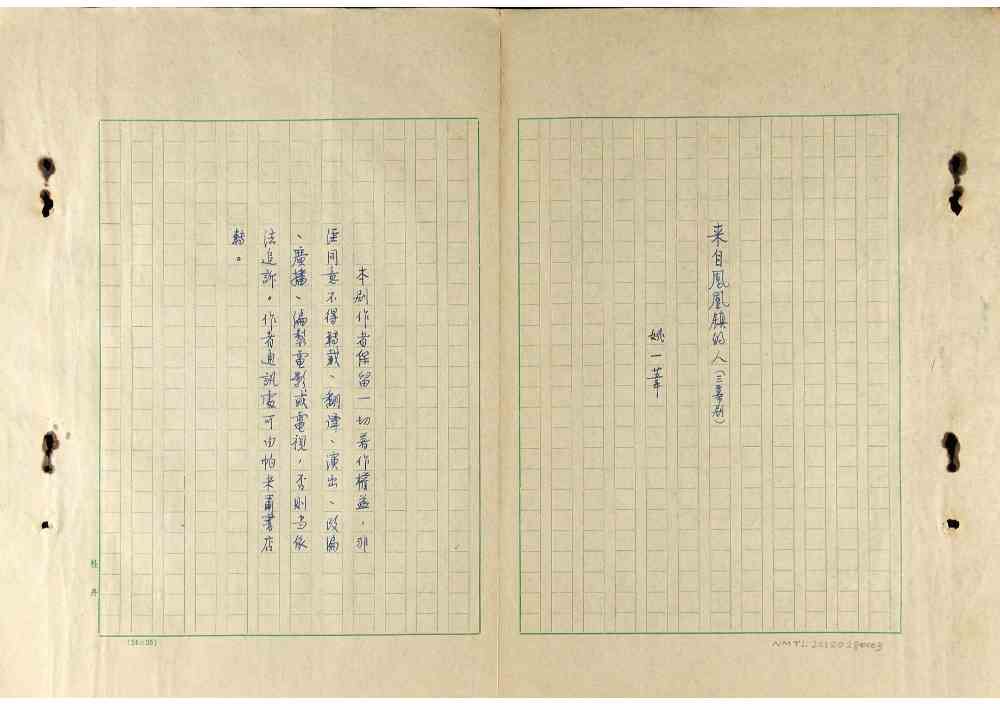 来自鳳凰鎮的人（三幕剧）
姚一葦
本剧作者保留一切著作權益，非
經同意不得轉載、翻譯、演出、改編
、廣播、編製電影或電視，否則当依
法追訴。作者通訊處可由帕米爾書店
轉。
桂丹
(24×25)